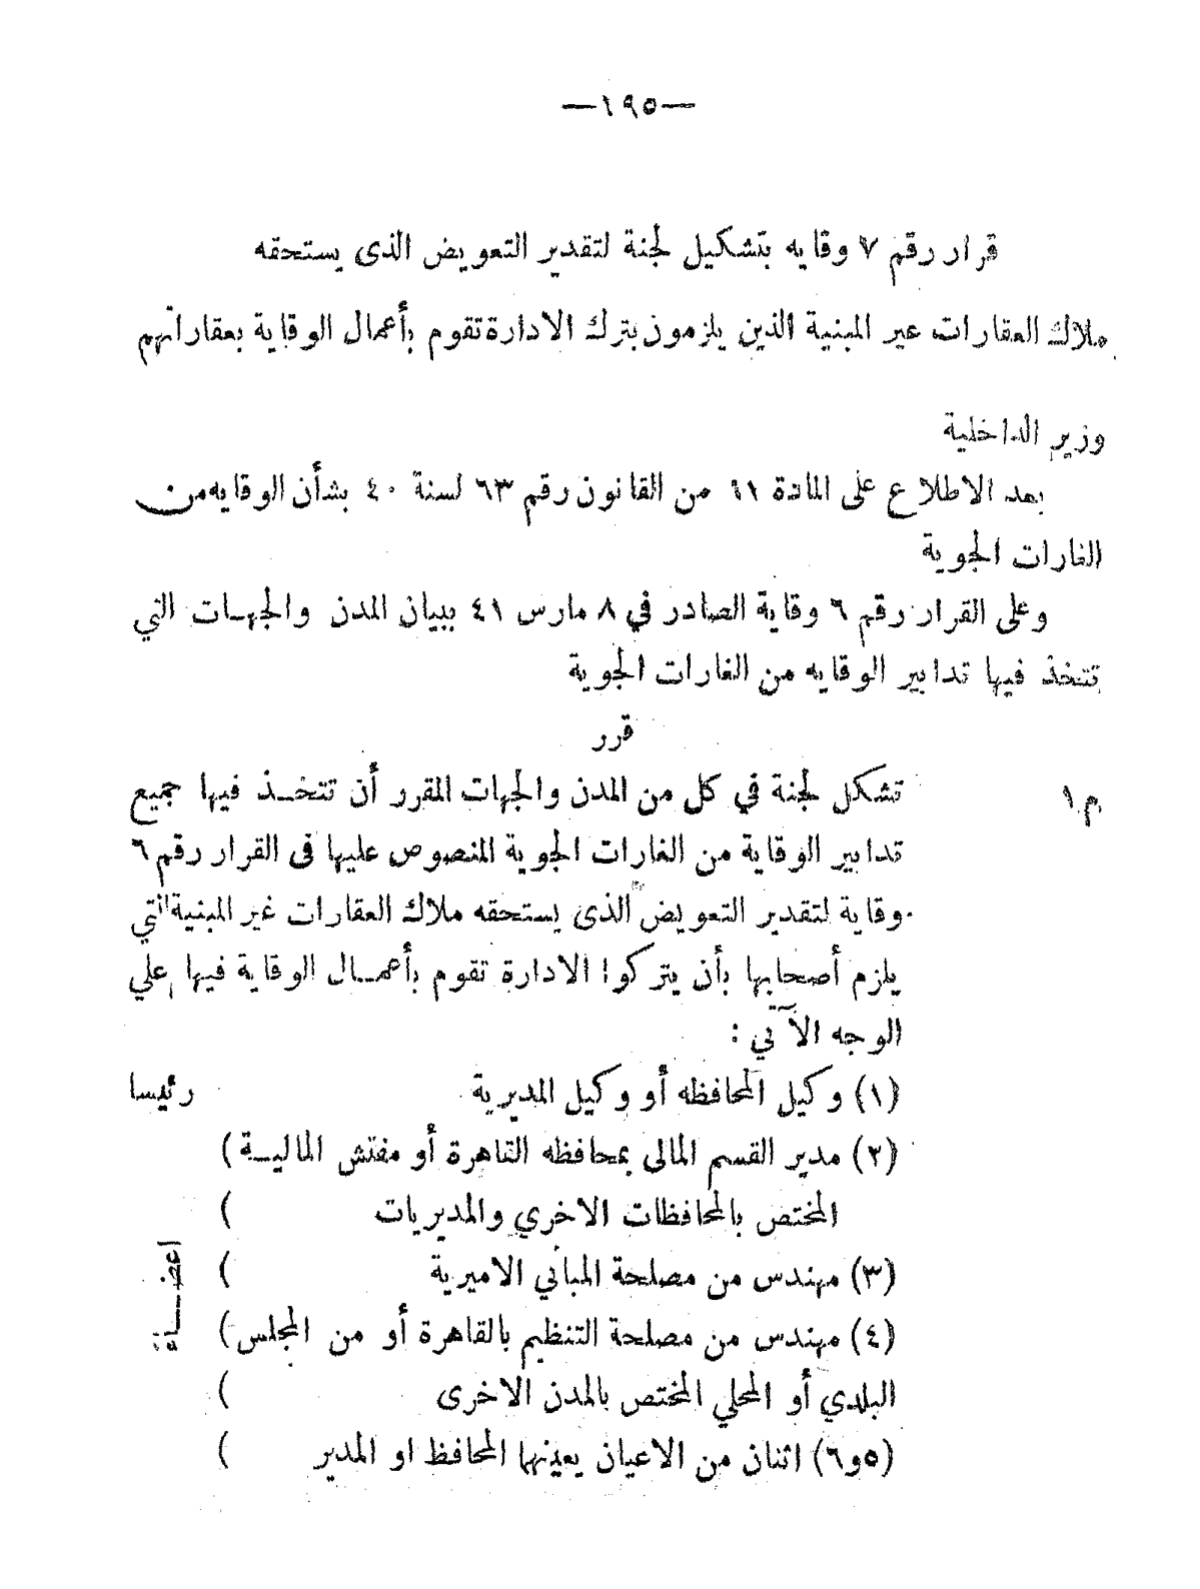 —١٩٥—
قرار رقم ٧ وقايه بتشكيل لجنة لتقدير التعويض الذى يستحقه
ملاك العقارات غير المبنية الذين يلزمون بترك الادارة تقوم بأعمال الوقاية بعقاراتهم
وزير الداخلية
بعد الاطلاع على المادة ١١ من القانون رقم ٦٣ لسنة ٤٠ بشأن الوقايه من
الغارات الجوية
وعلى القرار رقم ٦ وقاية الصادر في ٨ مارس ٤١ ببيان المدن والجهـات التي
تتخذ فيها تدابير الوقايه من الغارات الجوية
قرر
م ١ تشكل لجنة في كل من المدن والجهات المقرر أن تتخــذ فيها جميع
تدابير الوقاية من الغارات الجوية المنصوص عليها فى القرار رقم ٦
وقاية لتقدير التعويض الذى يستحقه ملاك العقارات غير المبنية التي
يلزم أصحابها بأن يتركوا الادارة تقوم بأعمــال الوقاية فيها علي
الوجه الآتي :
(١) وكيل المحافظه أو وكيل المديرية رئيسا
(٢) مدير القسم المالى بمحافظه القاهرة أو مفتش الماليــة )
المختص بالمحافظات الاخري والمديريات )
(٣) مهندس من مصلحة المباني الاميرية )
(٤) مهندس من مصلحة التنظيم بالقاهرة أو من المجلس )
البلدي أو المحلي المختص بالمدن الاخرى )
(٥و٦) اثنان من الاعيان يعينهما المحافظ او المدير )
اعضــاء